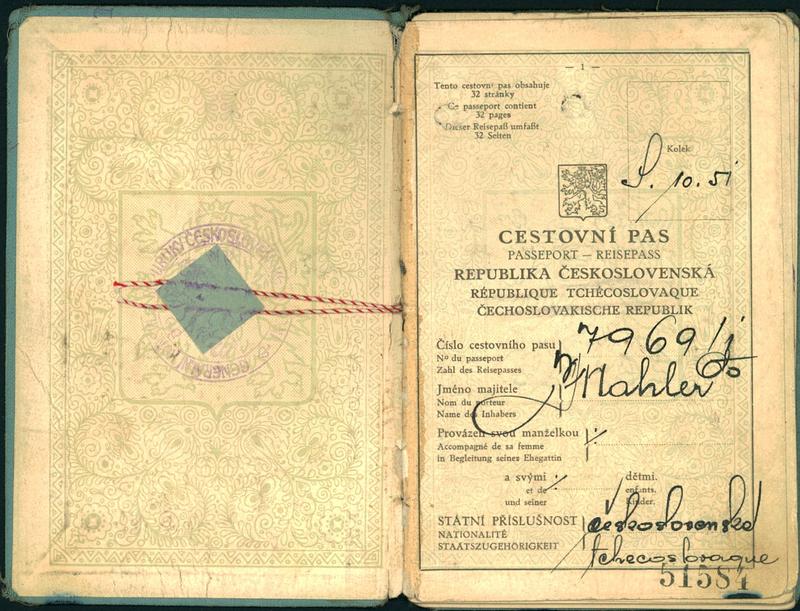 ČESKOSLOV
GENERÁL
— 1 —
Tento cestovní pas obsahuje
32 stránky
Ce passeport contient
32 pages
Dieser Reisepaß umfaßt
32 Seiten
Kolek
10.
CESTOVNÍ PAS
PASSEPORT — REISEPASS
REPUBLIKA ČESKOSLOVENSKÁ
RÉPUBLIQUE TCHÉCOSLOVAQUE
ČECHOSLOVAKISCHE REPUBLIK
Číslo cestovního pasu
Nº du passeport
Zahl des Reisepasses
7969/
Jméno majitele
Nom du porteur
Name des Inhabers
Mahler
Provázen svou manželkou
Accompagné de sa femme
in Begleitung seines Ehegattin
a svými dětmi.
et de enfants.
und seiner Kinder.
STÁTNÍ PŘÍSLUŠNOST
NATIONALITÉ
STAATSZUGEHÖRIGKEIT
československé
tchecoslovaque
51584